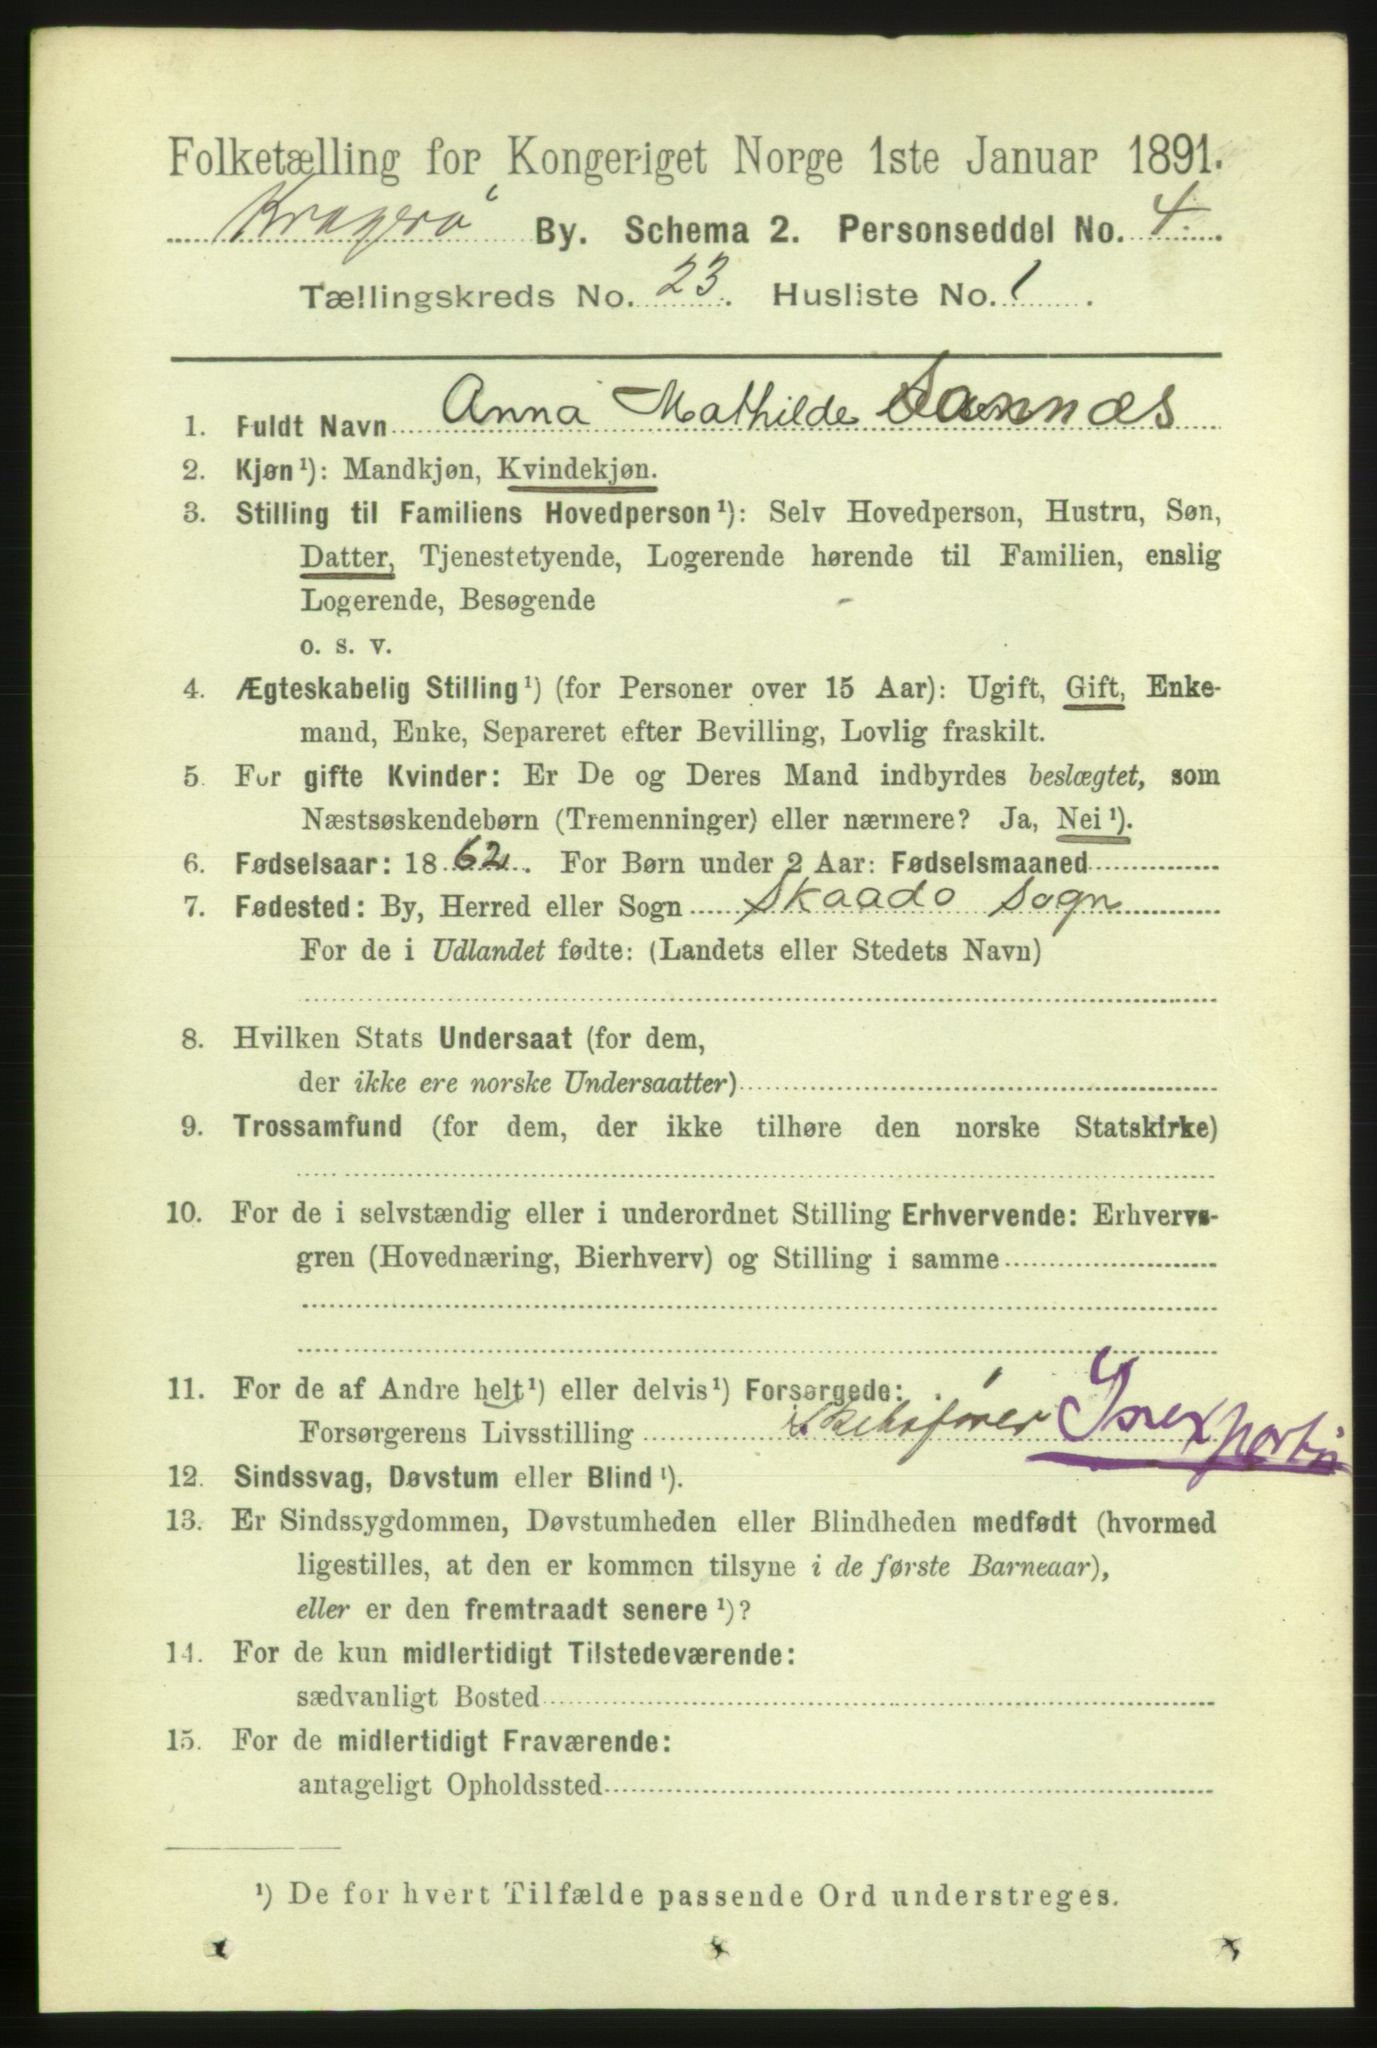 Folketælling for Kongeriget Norge 1ste Januar 1891.
Kragerø By. Schema 2. Personseddel No. 4.
Tællingskreds No. 23. Husliste No. 1.
1. Fuldt Navn Anna Mathilde Sannæs
2. Kjøn¹): Mandkjøn, Kvindekjøn.
3. Stilling til Familiens Hovedperson¹): Selv Hovedperson, Hustru, Søn,
Datter, Tjenestetyende, Logerende hørende til Familien, enslig
Logerende, Besøgende
o. s. v.
4. Ægteskabelig Stilling¹) (for Personer over 15 Aar): Ugift, Gift, Enke-
mand, Enke, Separeret efter Bevilling, Lovlig fraskilt.
5. For gifte Kvinder: Er De og Deres Mand indbyrdes beslægtet, som
Næstsøskendebørn (Tremenninger) eller nærmere? Ja, Nei¹).
6. Fødselsaar: 1862. For Børn under 2 Aar: Fødselsmaaned
7. Fødested: By, Herred eller Sogn Skaadø Sogn
For de i Udlandet fødte: (Landets eller Stedets Navn)
8. Hvilken Stats Undersaat (for dem,
der ikke ere norske Undersaatter)
9. Trossamfund (for dem, der ikke tilhøre den norske Statskirke)
10. For de i selvstændig eller i underordnet Stilling Erhvervende: Erhvervs-
gren (Hovednæring, Bierhverv) og Stilling i samme
11. For de af Andre helt¹) eller delvis¹) Forsørgede:
Forsørgerens Livsstilling Skibsfører
12. Sindssvag, Døvstum eller Blind¹).
13. Er Sindssygdommen, Døvstumheden eller Blindheden medfødt (hvormed
ligestilles, at den er kommen tilsyne i de første Barneaar),
eller er den fremtraadt senere¹)?
14. For de kun midlertidigt Tilstedeværende:
sædvanligt Bosted
15. For de midlertidigt Fraværende:
antageligt Opholdssted
¹) De for hvert Tilfælde passende Ord understreges.